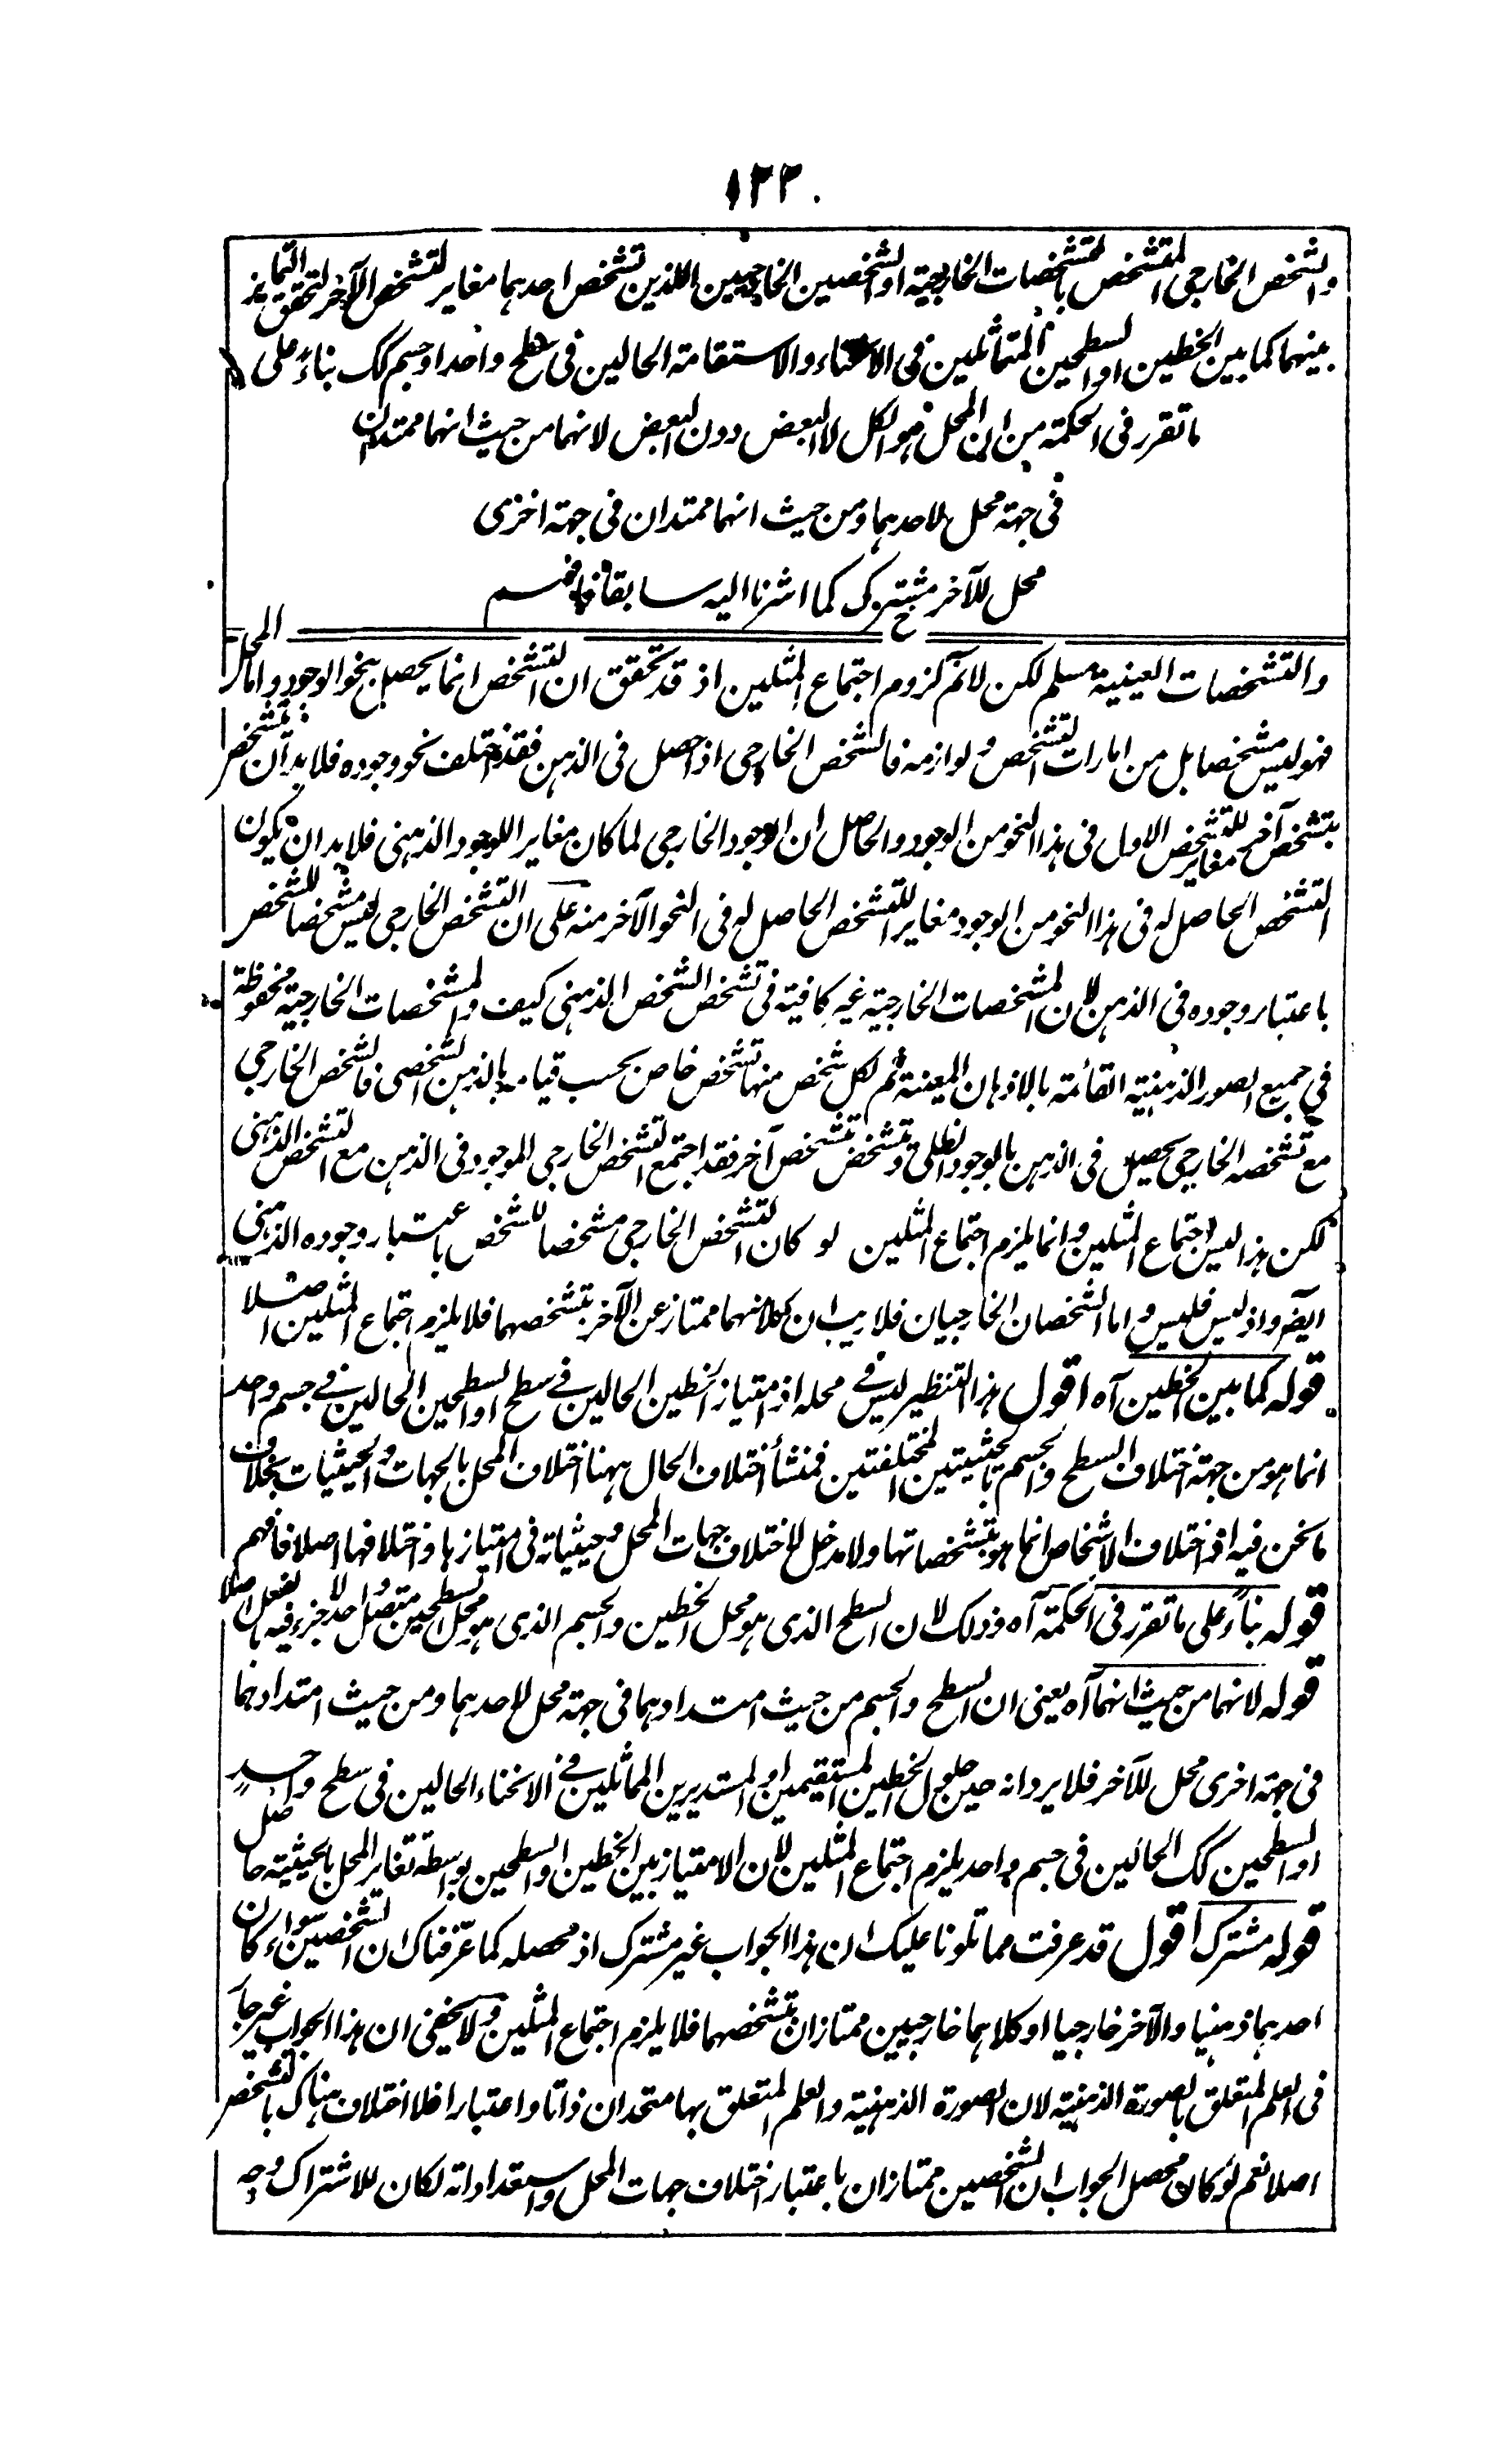 ١٢٣
والشخص الخارجي المتشخص بالتشخصات الخارجية او الشخصين الخارجيين اللذين تشخص احدهما مغاير لتشخص الآخر لتحقق التمايز
بينهما كما بين الخطين او السطحين المتماثلين في الانحناء والاستقامة الحالين في سطح واحد او جسم كك بناءً على
ما تقرر في الحكمة من ان المحل هو الكل لا البعض دون البعض لانهما من حيث انهما ممتدان
في جهة محل لاحدهما ومن حيث انهما ممتدان في جهة اخرى
محل للآخر مشترك كما اشرنا اليه سابقا فافهم
والتشخصات العينية مسلم لكن لانم لزوم اجتماع المثلين اذ قد تحقق ان التشخص انما يحصل بنحو الوجود واما المحل
فهو ليس مشخصا بل من امارات التشخص ولوازمه فالشخص الخارجي اذا حصل في الذهن فقد اختلف نحو وجوده فلا بد ان يتشخص
بتشخص آخر مغاير للتشخص الاول في هذا النحو من الوجود والحاصل ان الوجود الخارجي لما كان مغايرا للوجود الذهني فلا بد ان يكون
التشخص الحاصل له في هذا النحو من الوجود مغايرا للتشخص الحاصل له في النحو الآخر منه على ان التشخص الخارجي ليس مشخصا للشخص
باعتبار وجوده في الذهن لان المشخصات الخارجية غير كافية في تشخص الشخص الذهني كيف والمشخصات الخارجية محفوظة
في جميع الصور الذهنية القائمة بالاذهان المعينة ثم لكل شخص منها تشخص خاص بحسب قيامه بالذهن الشخصي فالشخص الخارجي
مع تشخصه الخارجي يحصل في الذهن بالوجود الظلي ويتشخص بتشخص آخر فقد اجتمع التشخص الخارجي الموجود في الذهن مع التشخص الذهني
لكن هذا ليس اجتماع المثلين وانما يلزم اجتماع المثلين لو كان التشخص الخارجي مشخصا للشخص باعتبار وجوده الذهني
ايضا واذ ليس فليس واما الشخصان الخارجيان فلا ريب ان كلا منهما ممتاز عن الآخر بتشخصهما فلا يلزم اجتماع المثلين اصلا
قوله كما بين الخطين آه اقول هذا التنظير ليس في محله اذ امتياز الخطين الحالين في سطح او السطحين الحالين في جسم واحد
انما هو من جهة اختلاف السطح والجسم بالحيثيتين المختلفتين فمنشأ اختلاف الحال ههنا اختلاف المحل بالجهات والحيثيات بخلاف
ما نحن فيه اذ اختلاف الاشخاص انما هو بتشخصاتها ولا مدخل لاختلاف جهات المحل وحيثياته في امتيازها واختلافها اصلا فافهم
قوله بناءً على ما تقرر في الحكمة آه وذلك لان السطح الذي هو محل الخطين والجسم الذي هو محل السطحين متصل واحد لا جزء فيه بالفعل اصلا
قوله لانهما من حيث انهما آه يعني ان السطح والجسم من حيث امتدادهما في جهة محل لاحدهما ومن حيث امتدادهما
في جهة اخرى محل للآخر فلا يرد انه حين حلول الخطين المستقيمين او المستديرين المماثلين في الانحناء الحالين في سطح واحد
او السطحين كك الحالين في جسم واحد يلزم اجتماع المثلين لان الامتياز بين الخطين او السطحين بواسطة تغاير المحل بالحيثية حاصل
قوله مشترك اقول قد عرفت مما تلونا عليك ان هذا الجواب غير مشترك اذ محصله كما عرفناك ان الشخصين سواء كان
احدهما ذهنيا والآخر خارجيا او كلاهما خارجيين ممتازان بتشخصهما فلا يلزم اجتماع المثلين ولا يخفى ان هذا الجواب غير جار
في العلم المتعلق بالصورة الذهنية لان الصورة الذهنية والعلم المتعلق بها متحدان ذاتا واعتبارا فلا اختلاف هناك بالتشخص
اصلا نعم لو كان محصل الجواب ان الشخصين ممتازان باعتبار اختلاف جهات المحل واستعداداته لكان للاشتراك وجه